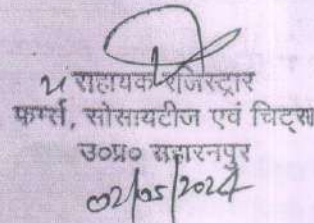 सहायक रजिस्ट्रार
फर्म्स, सोसायटीज एवं चिट्स
उ०प्र० सहारनपुर
02/05/2024